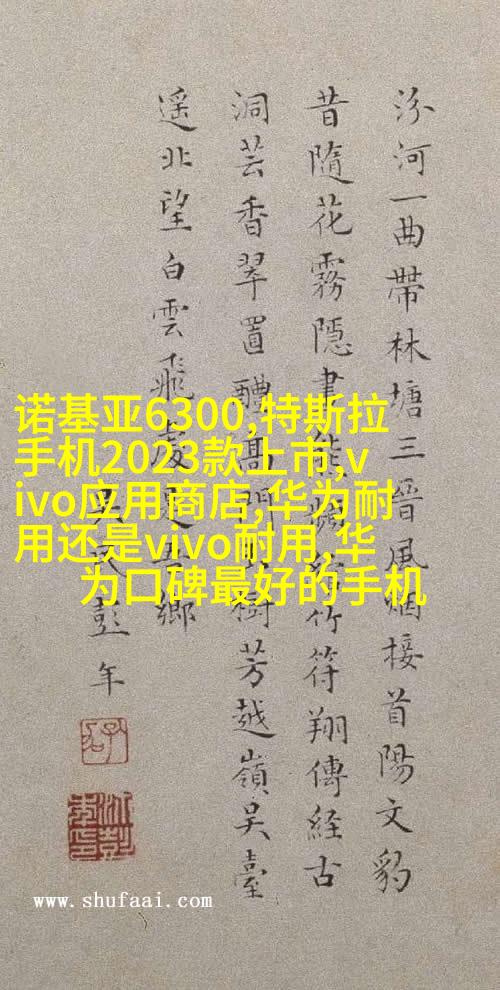 汾河一曲帶林塘三晉風烟接首陽文豹
昔隨花霧隱書能竹符翔傳経古
洞芸香翠置醴高門樹芳越嶺吴臺
遥北望白雲飛處鄉
彭年
诺基亚6300,特斯拉
手机2023款上市,v
ivo应用商店,华为耐
用还是vivo耐用,华
为口碑最好的手机
www.shufaai.com